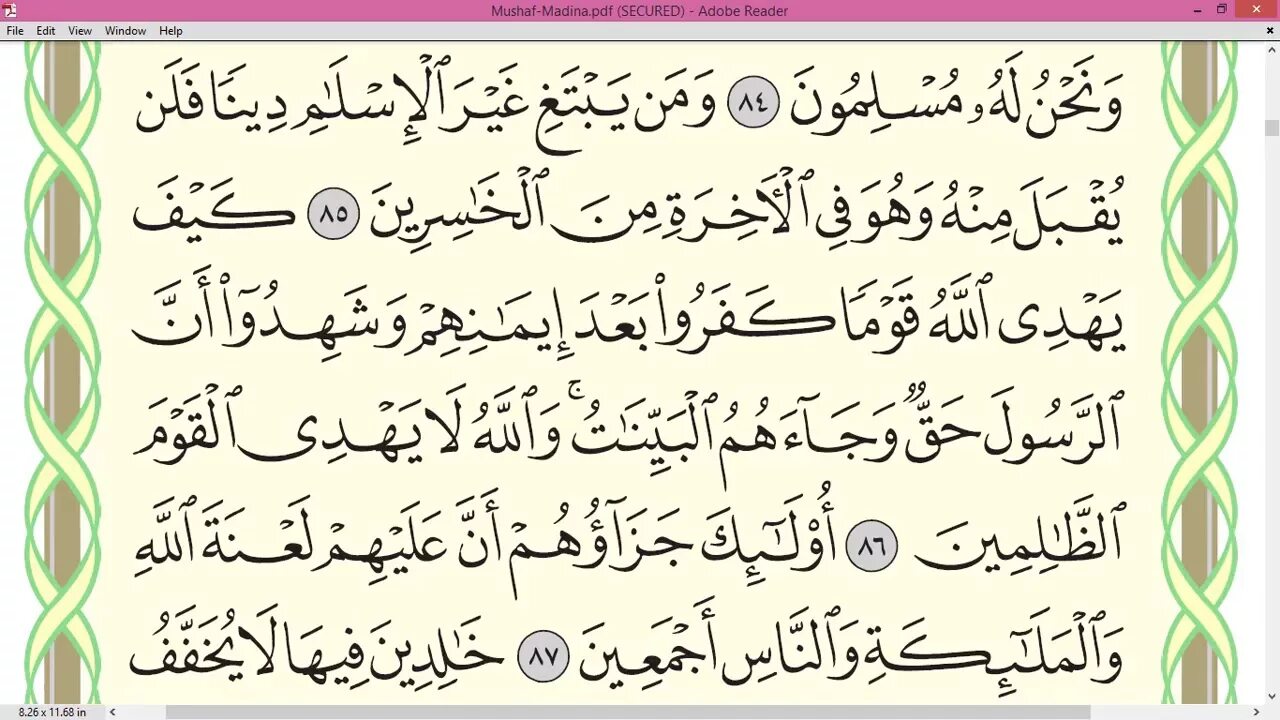 Mushaf-Madina.pdf (SECURED) - Adobe Reader
File Edit View Window Help
وَنَحْنُ لَهُۥ مُسْلِمُونَ ٨٤ وَمَن يَبْتَغِ غَيْرَ ٱلْإِسْلَٰمِ دِينًا فَلَن
يُقْبَلَ مِنْهُ وَهُوَ فِى ٱلْأَخِرَةِ مِنَ ٱلْخَٰسِرِينَ ٨٥ كَيْفَ
يَهْدِى ٱللَّهُ قَوْمًا كَفَرُوا۟ بَعْدَ إِيمَٰنِهِمْ وَشَهِدُوٓا۟ أَنَّ
ٱلرَّسُولَ حَقٌّ وَجَآءَهُمُ ٱلْبَيِّنَٰتُ ۚ وَٱللَّهُ لَا يَهْدِى ٱلْقَوْمَ
ٱلظَّٰلِمِينَ ٨٦ أُو۟لَٰٓئِكَ جَزَآؤُهُمْ أَنَّ عَلَيْهِمْ لَعْنَةَ ٱللَّهِ
وَٱلْمَلَٰٓئِكَةِ وَٱلنَّاسِ أَجْمَعِينَ ٨٧ خَٰلِدِينَ فِيهَا لَا يُخَفَّفُ
8.26 x 11.68 in